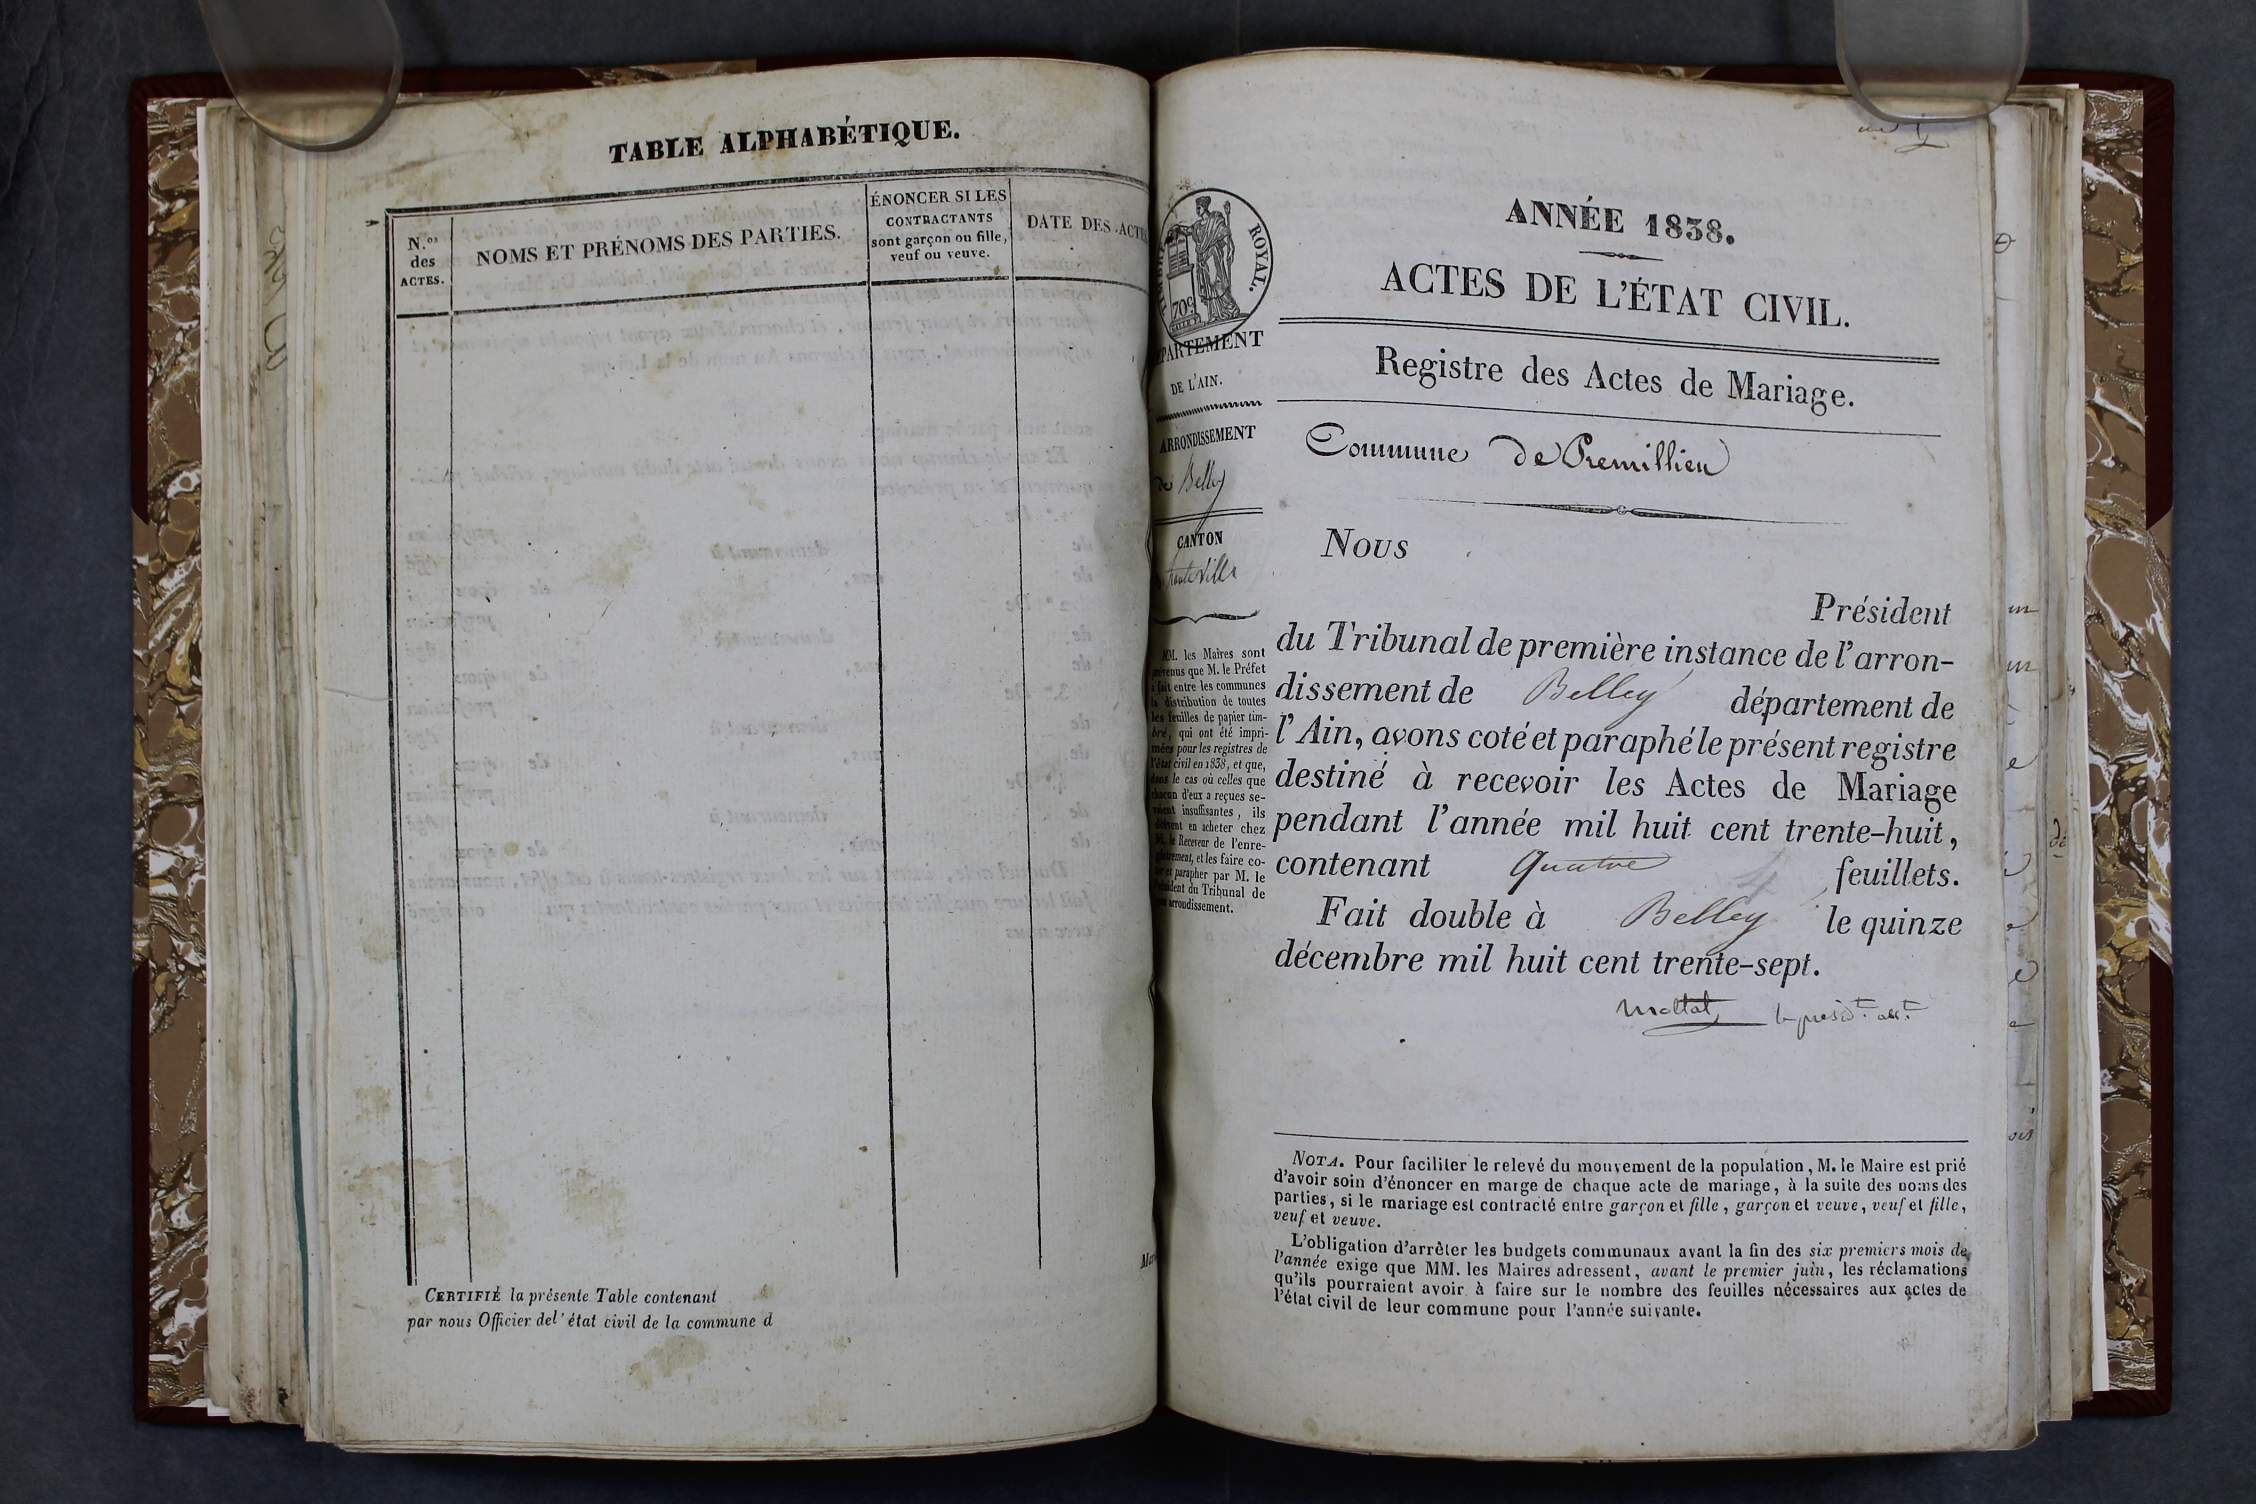 TABLE ALPHABÉTIQUE.
N.os
des
ACTES.
NOMS ET PRÉNOMS DES PARTIES.
ÉNONCER SI LES
CONTRACTANTS
sont garçon ou fille,
veuf ou veuve.
DATE DES ACTES
CERTIFIÉ la présente Table contenant
par nous Officier de l'état civil de la commune d
ROYAL.
70c
DÉPARTEMENT
DE L'AIN.
ARRONDISSEMENT
de Belley
CANTON
hauteville
MM. les Maires sont
prévenus que M. le Préfet
a fait entre les communes
la distribution de toutes
les feuilles de papier tim-
bré, qui ont été impri-
mées pour les registres de
l'état civil en 1838, et que,
dans le cas où celles que
chacun d'eux a reçues se-
raient insuffisantes, ils
doivent en acheter chez
M. le Receveur de l'enre-
gistrement, et les faire co-
ter et parapher par M. le
Président du Tribunal de
arrondissement.
ANNÉE 1838.
ACTES DE L'ÉTAT CIVIL.
Registre des Actes de Mariage.
Commune de Premillieu
Nous
Président
du Tribunal de première instance de l'arron-
dissement de Belley département de
l'Ain, avons coté et paraphé le présent registre
destiné à recevoir les Actes de Mariage
pendant l'année mil huit cent trente-huit,
contenant Quatre 4 feuillets.
Fait double à Belley le quinze
décembre mil huit cent trente-sept.
NOTA. Pour faciliter le relevé du mouvement de la population, M. le Maire est prié
d'avoir soin d'énoncer en marge de chaque acte de mariage, à la suite des noms des
parties, si le mariage est contracté entre garçon et fille, garçon et veuve, veuf et fille,
veuf et veuve.
L'obligation d'arrêter les budgets communaux avant la fin des six premiers mois de
l'année exige que MM. les Maires adressent, avant le premier juin, les réclamations
qu'ils pourraient avoir à faire sur le nombre des feuilles nécessaires aux actes de
l'état civil de leur commune pour l'année suivante.